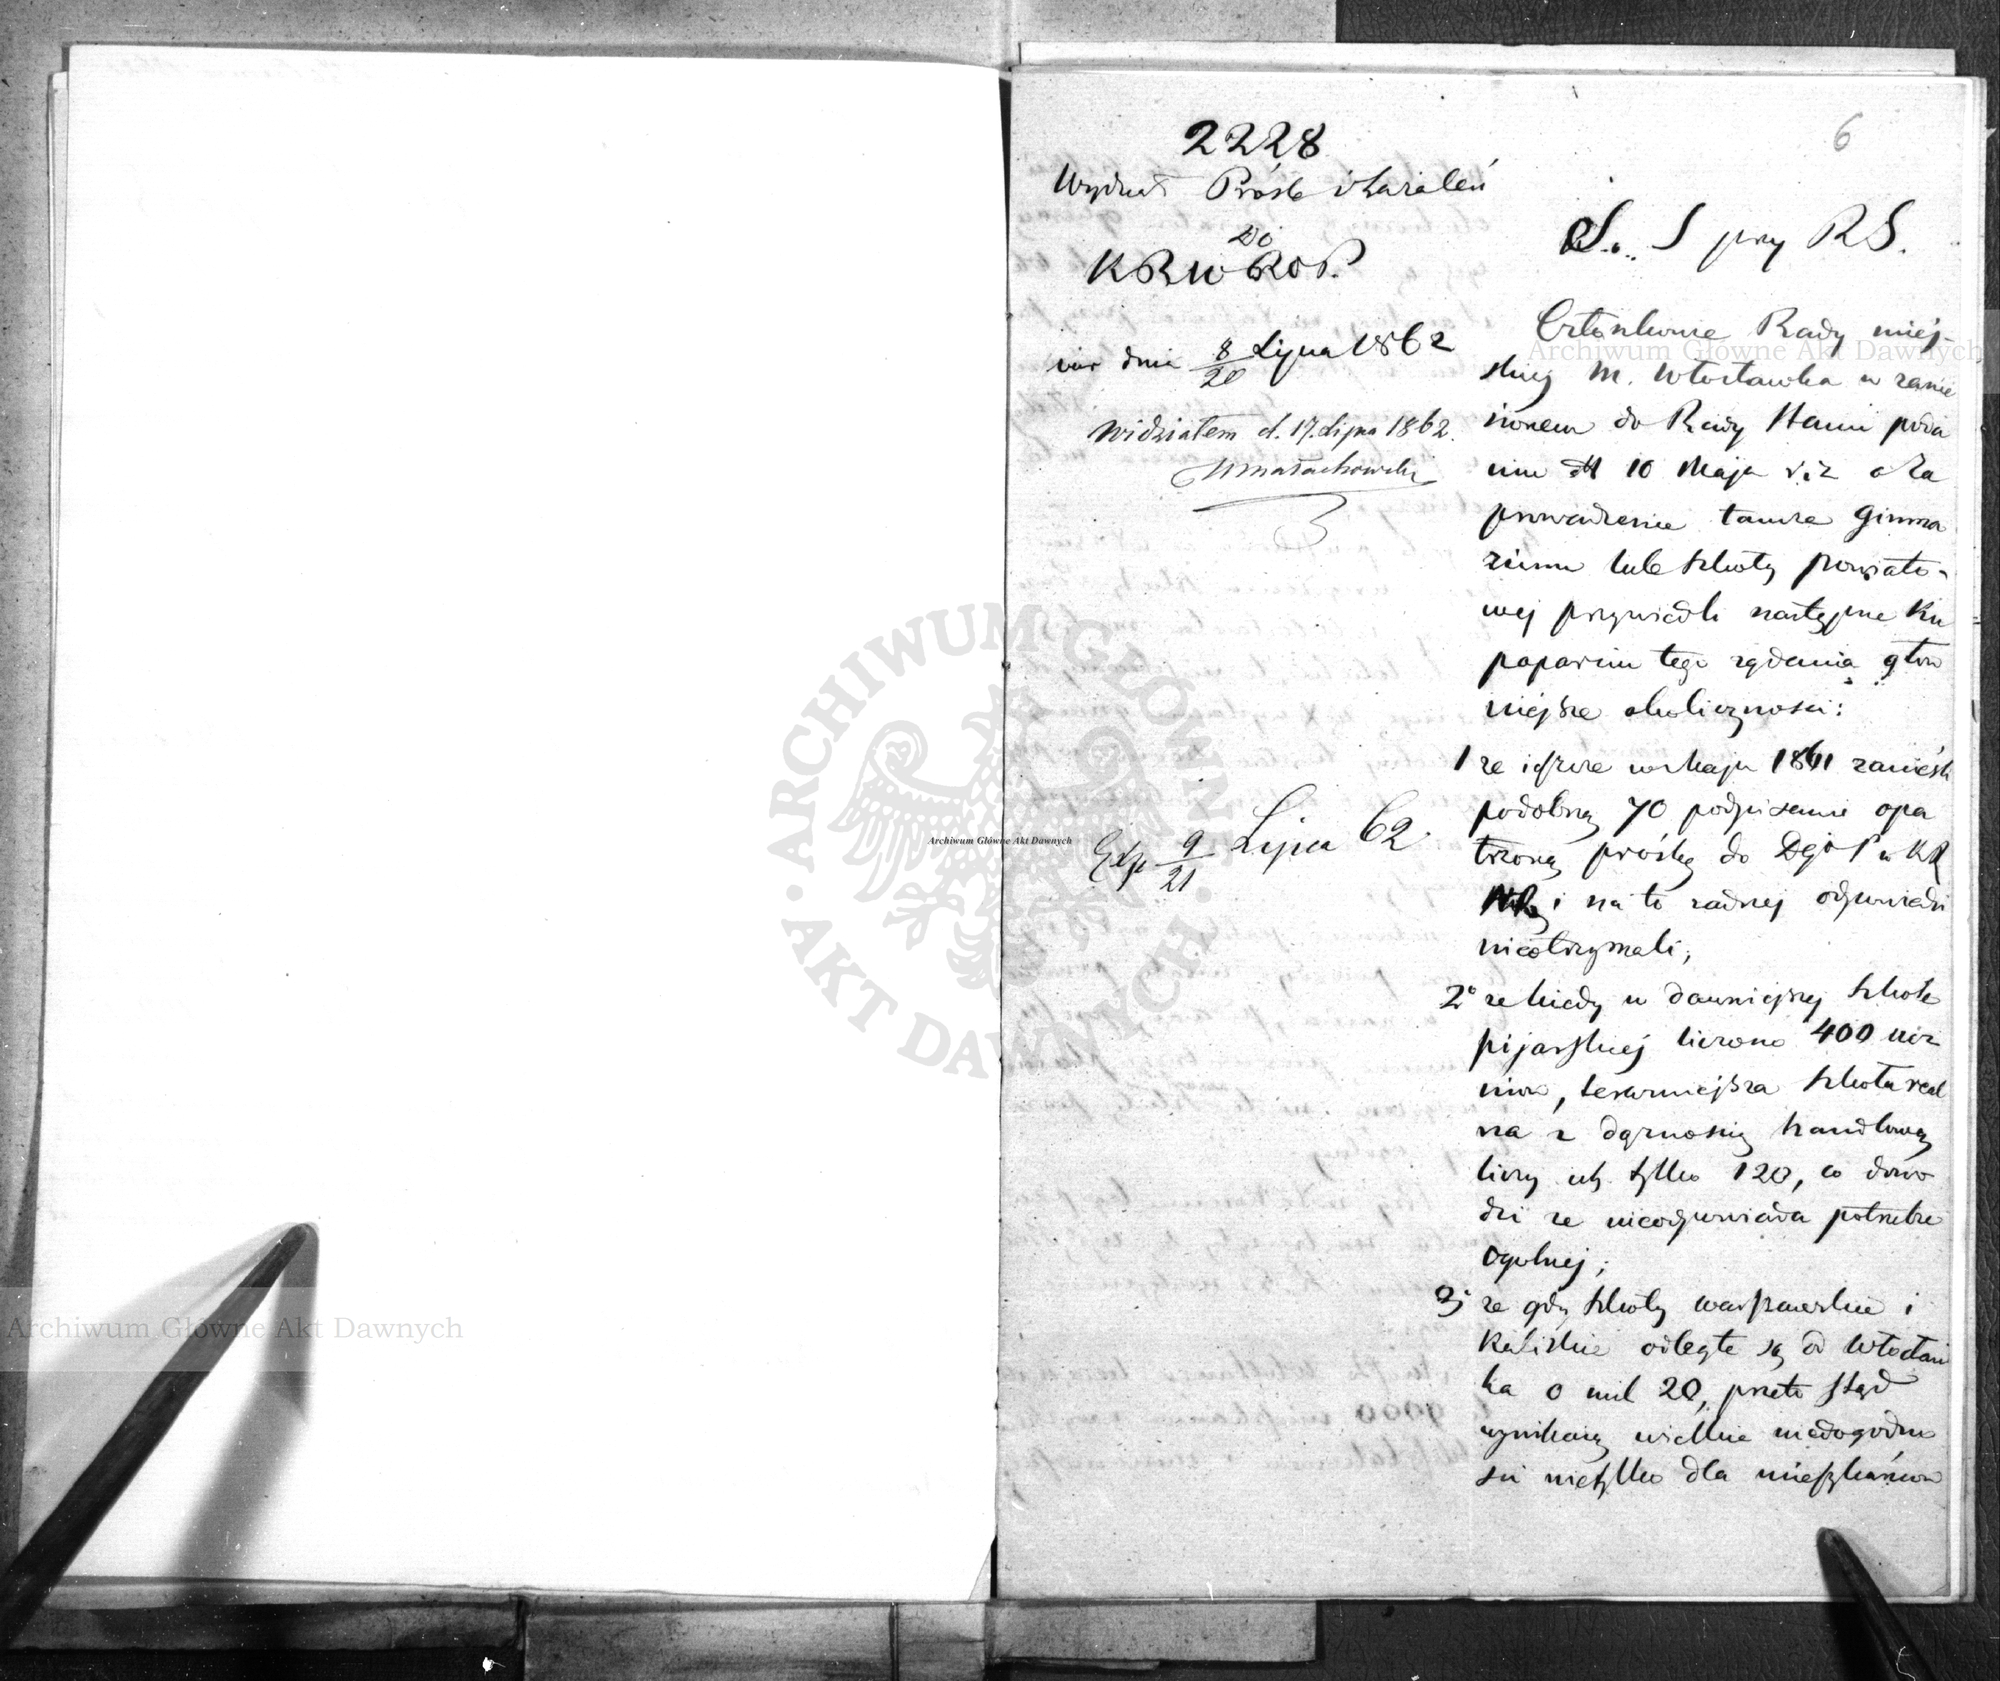 6
2228
Wydział Próśb i Zażaleń
Do
KRWROP.
w dnia 8/20 Lipca 1862
Widziałem d. 17. Lipca 1862.
Małachowski
Exp 9/21 Lipca 62
S. S przy RS.
Członkowie Rady miej-
skiej M. Włocławka w zanie
sionem do Rady Stanu poda
niu 10 Maja o za
prowadzenie tamże Gimna
zium lub szkoły powiato-
wej przywiedli następne ku
poparciu tego żądania głów
niejsze okoliczności:
1 że iuż w Maju 1861 zanieśli
podobną 70 podpisami opa
trzoną prośbę do DgoP w KR
i na to żadnej odpowiedzi
nieotrzymali;
2° że kiedy w dawniejszej szkole
pijarskiej liczono 400 ucz
niów, terazniejsza szkoła real
na z dążnością handlową
liczy ich tylko 120, co dowo
dzi że nieodpowiada potrzebie
ogólnej;
3° że gdy szkoły warszawskie i
Kaliskie odległe są od Włocław
ka o mil 20, przeto stąd
wynikają wielkie niedogodno
ści nietylko dla mieszkańców
Archiwum Główne Akt Dawnych
Archiwum Główne Akt Dawnych
Archiwum Główne Akt Dawnych
ARCHIWUM GŁÓWNE · AKT DAWNYCH ·